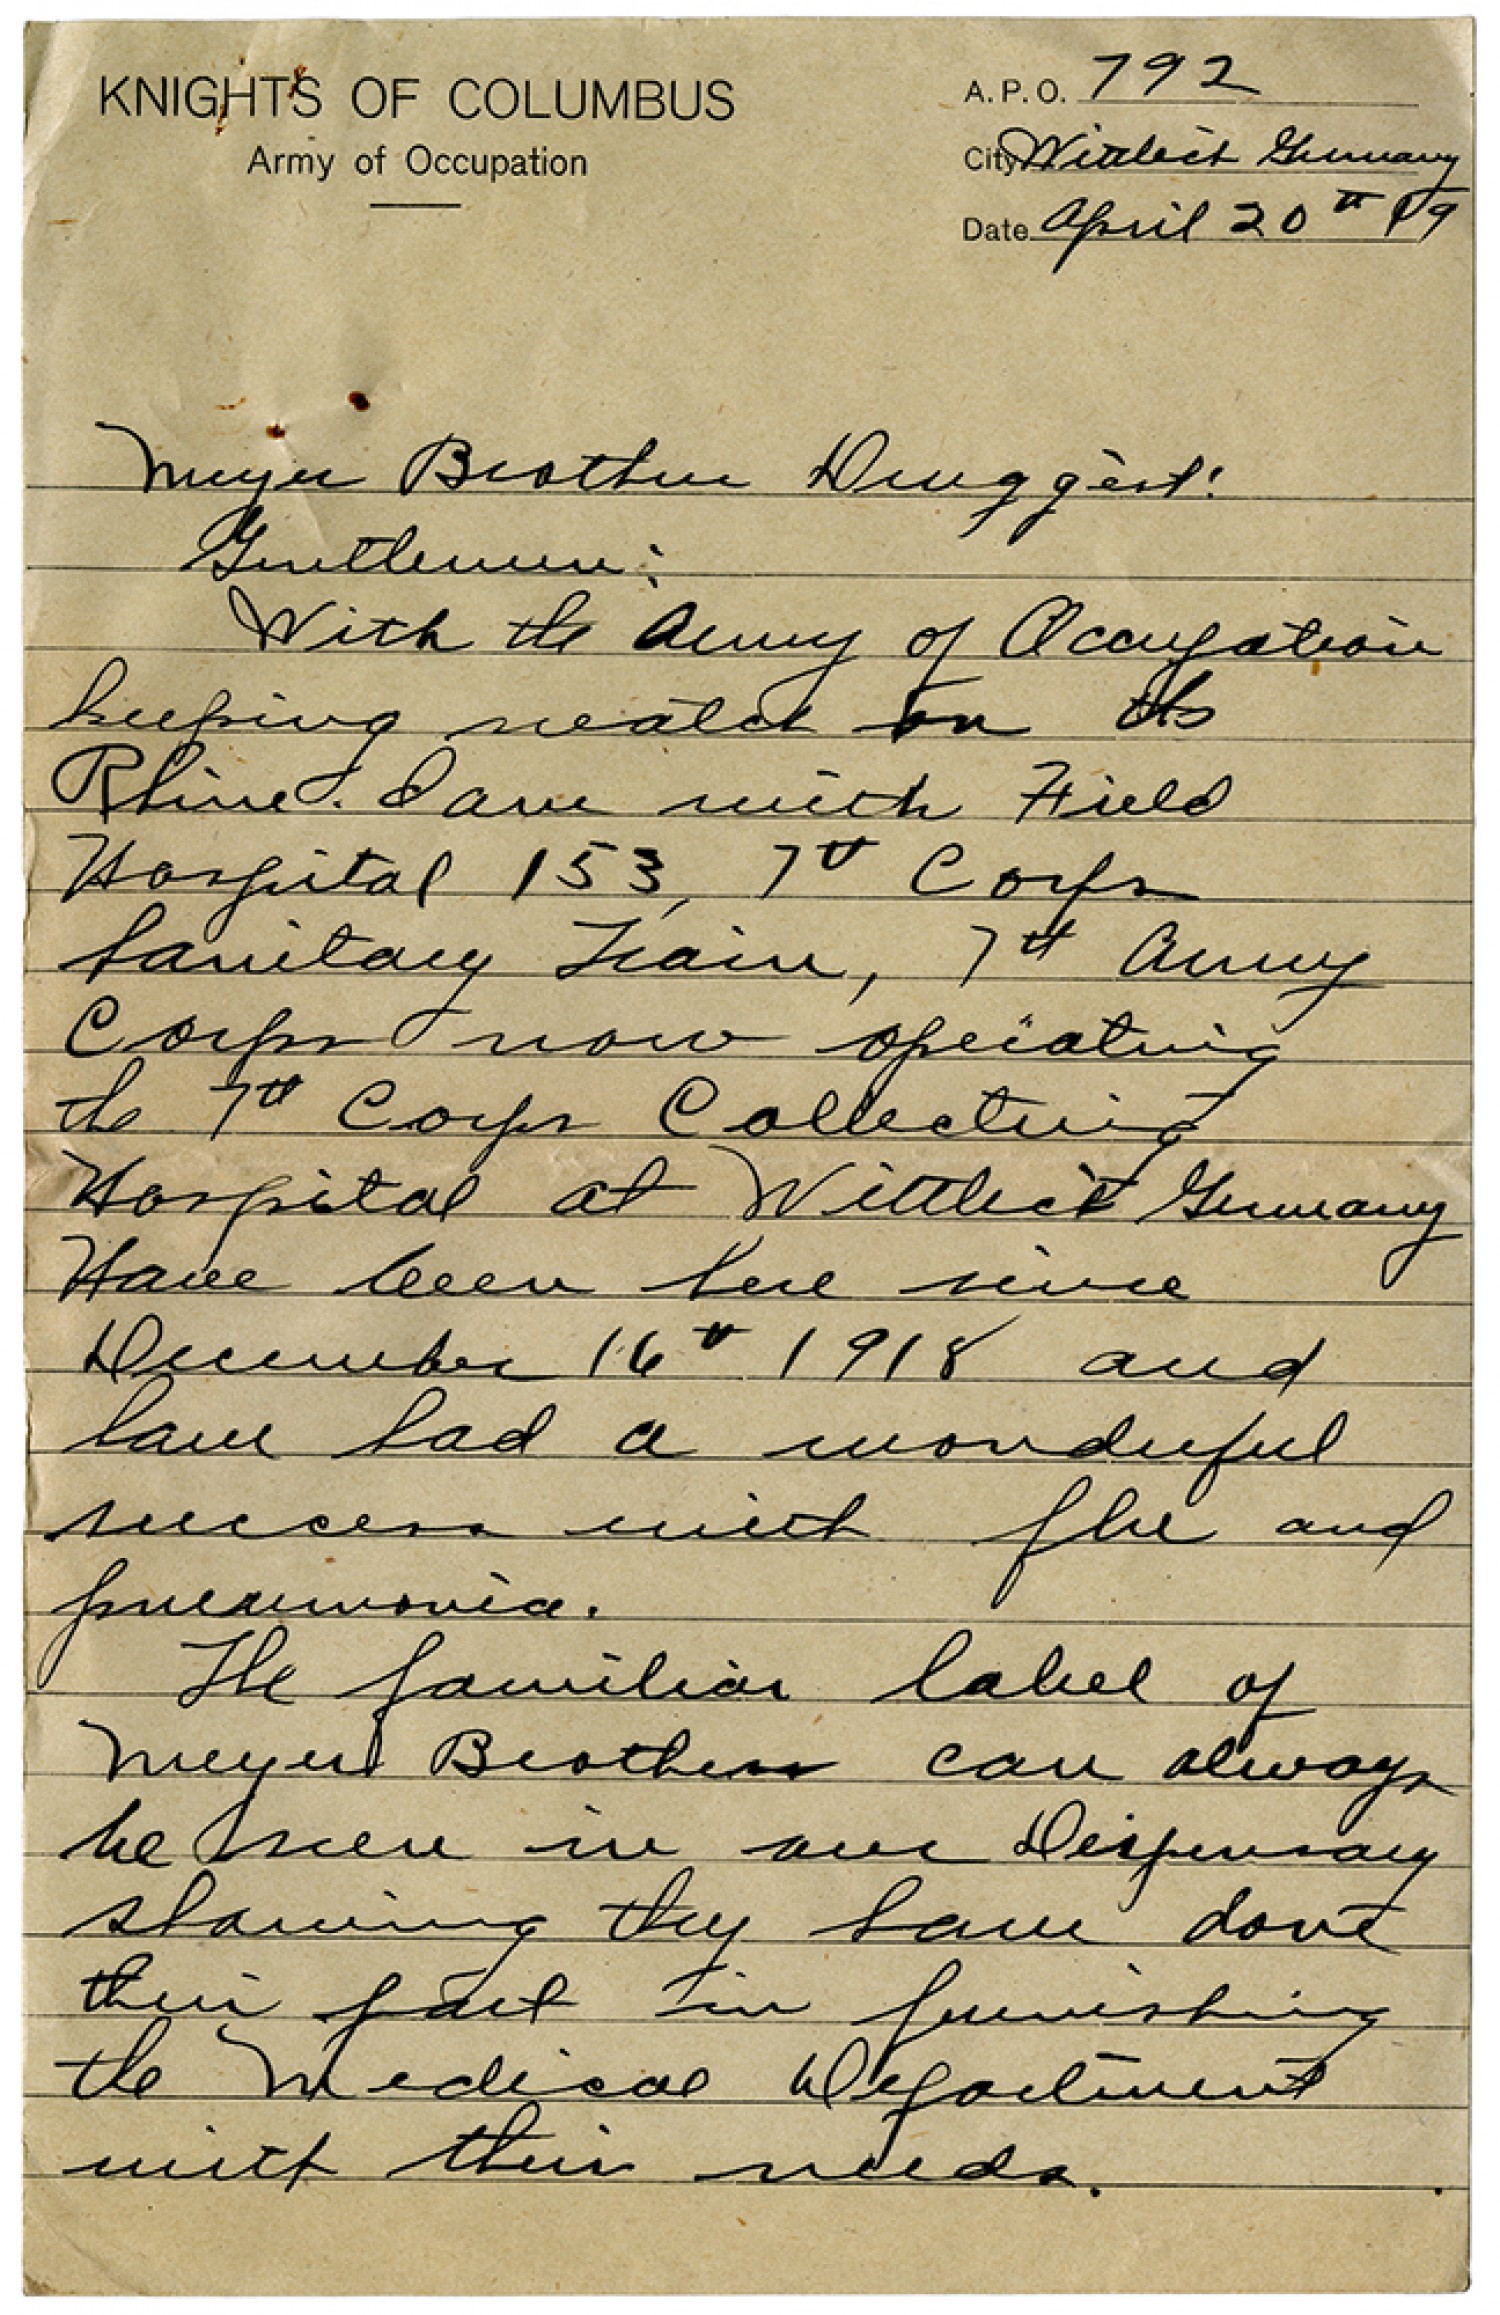 KNIGHTS OF COLUMBUS
Army of Occupation
A.P.O. 792
City Wittlich Germany
Date April 20th 19
Meyer Brother Druggist:
Gentlemen:
With the Army of Occupation
keeping watch on the
Rhine. I am with Field
Hospital 153, 7th Corps
Sanitary Train, 7th Army
Corps now operating
the 7th Corps Collecting
Hospital at Wittlich Germany
Have been here since
December 16th 1918 and
have had a wonderful
success with flu and
pneumonia.
The familiar label of
Meyer Brothers can always
be seen in our Dispensary
showing they have done
their part in furnishing
the Medical Department
with their needs.